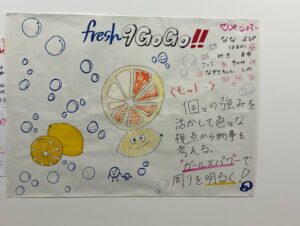 fresh 9GoGo!!
♡メンバー
なな よぴ
はるか
みき まゆ
こっこ ちゃか
ながさちゃん しの
<モットー>
個々の強みを
活かして色々な
視点から物事を
考える。
"ガールズパワー"で
周りを明るく!